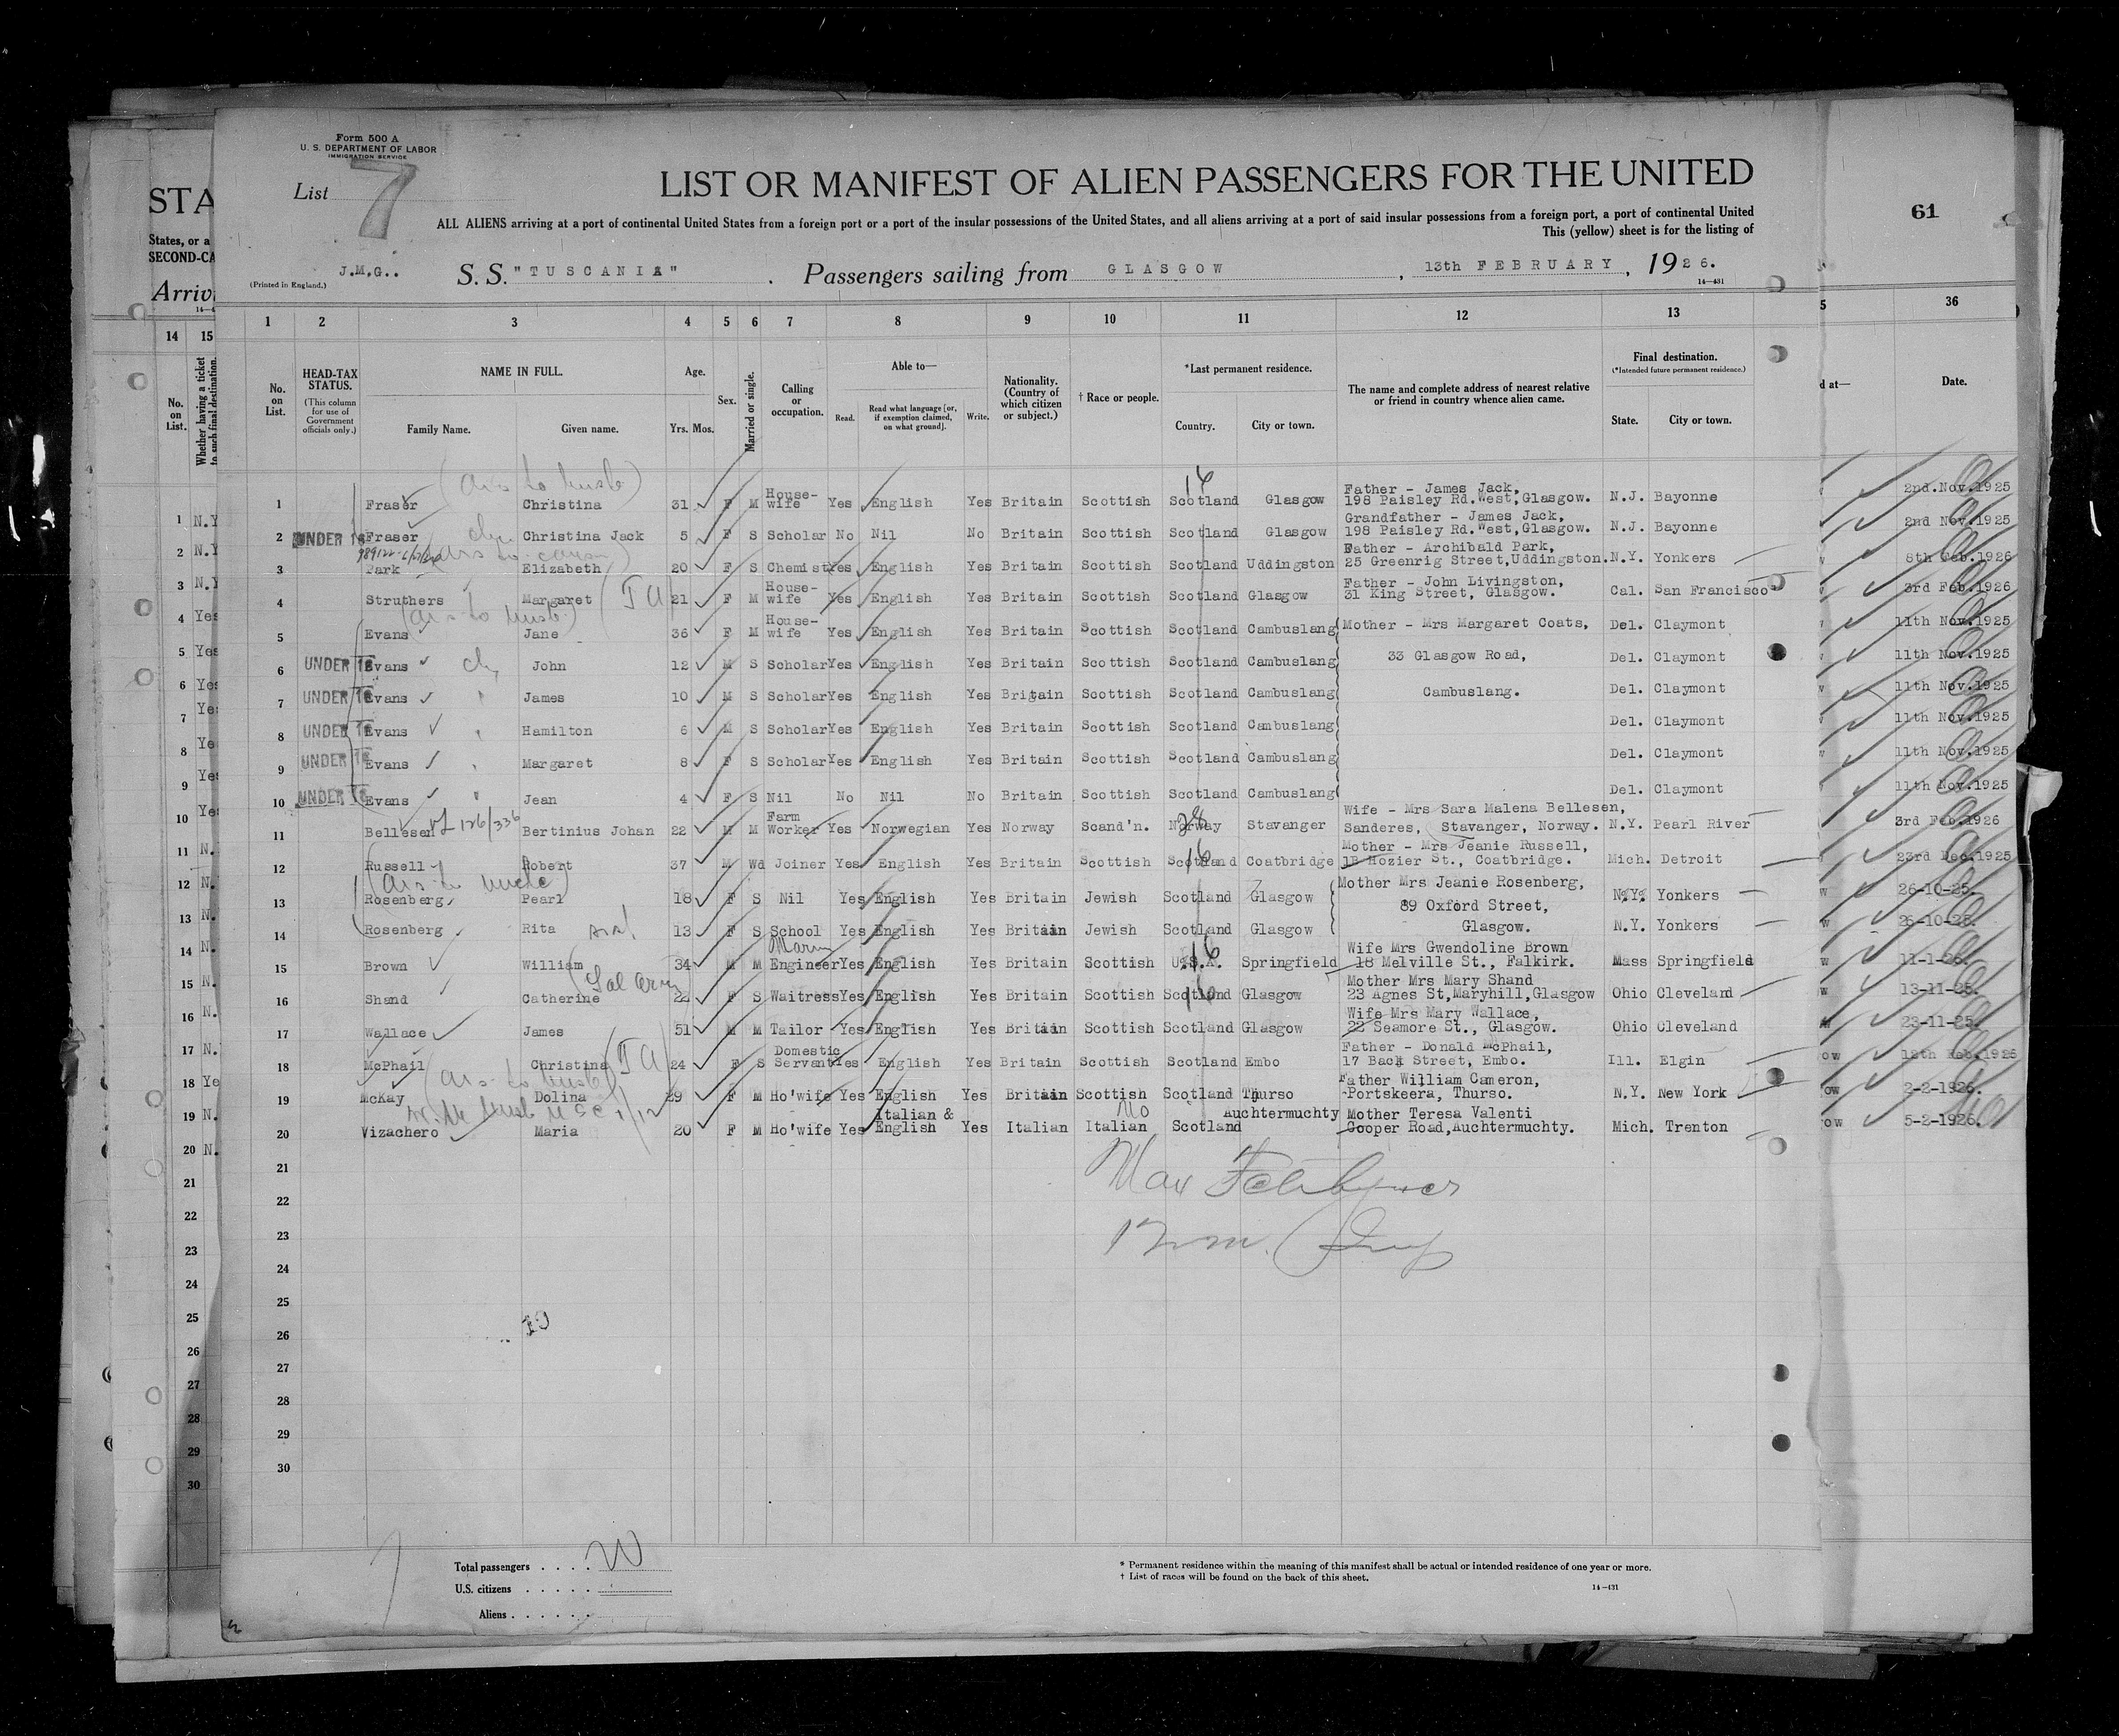 Form 500 A
U. S. DEPARTMENT OF LABOR
IMMIGRATION SERVICE
List 7
LIST OR MANIFEST OF ALIEN PASSENGERS FOR THE UNITED
STA
61
ALL ALIENS arriving at a port of continental United States from a foreign port or a port of the insular possessions of the United States, and all aliens arriving at a port of said insular possessions from a foreign port, a port of continental United
This (yellow) sheet is for the listing of
States, or a
SECOND-CA
Arriv
J.M.G..
(Printed in England.)
S. S. "TUSCANIA" . Passengers sailing from GLASGOW , 13th FEBRUARY , 1926.
14—431
1 2 3 4 5 6 7 8 9 10 11 12 13
14 15
5 36
No. on List.
HEAD-TAX STATUS.
(This column for use of Government officials only.)
NAME IN FULL.
Family Name. Given name.
Age.
Yrs. Mos.
Sex.
Married or single.
Calling or occupation.
Able to—
Read. Read what language [or, if exemption claimed, on what ground]. Write.
Nationality. (Country of which citizen or subject.)
† Race or people.
*Last permanent residence.
Country. City or town.
The name and complete address of nearest relative or friend in country whence alien came.
Final destination.
(*Intended future permanent residence.)
State. City or town.
No. on List.
Whether having a ticket to such final destination.
d at—
Date.
1 Fraser Christina 31 F M House-wife Yes English Yes Britain Scottish Scotland Glasgow Father - James Jack, 198 Paisley Rd.West,Glasgow. N.J. Bayonne 2nd.Nov.1925
2 UNDER 16 Fraser Christina Jack 5 F S Scholar No Nil No Britain Scottish Scotland Glasgow Grandfather - James Jack, 198 Paisley Rd.West,Glasgow. N.J. Bayonne 2nd Nov.1925
3 Park Elizabeth 20 F S Chemist Yes English Yes Britain Scottish Scotland Uddingston Father - Archibald Park, 25 Greenrig Street,Uddingston. N.Y. Yonkers 8th Feb.1926
4 Struthers Margaret 21 F M House-wife Yes English Yes Britain Scottish Scotland Glasgow Father - John Livingston, 31 King Street, Glasgow. Cal. San Francisco 3rd Feb.1926
5 Evans Jane 36 F M House-wife Yes English Yes Britain Scottish Scotland Cambuslang Mother - Mrs Margaret Coats, Del. Claymont 11th Nov.1925
6 UNDER 16 Evans John 12 M S Scholar Yes English Yes Britain Scottish Scotland Cambuslang 33 Glasgow Road, Del. Claymont 11th Nov.1925
7 UNDER 16 Evans James 10 M S Scholar Yes English Yes Britain Scottish Scotland Cambuslang Cambuslang. Del. Claymont 11th Nov.1925
8 UNDER 16 Evans Hamilton 6 M S Scholar Yes English Yes Britain Scottish Scotland Cambuslang Del. Claymont 11th Nov.1925
9 UNDER 16 Evans Margaret 8 F S Scholar Yes English Yes Britain Scottish Scotland Cambuslang Del. Claymont 11th Nov.1925
10 UNDER 16 Evans Jean 4 F S Nil No Nil No Britain Scottish Scotland Cambuslang Del. Claymont 11th Nov.1925
11 Bellesen Bertinius Johan 22 M M Farm Worker Yes Norwegian Yes Norway Scand'n. Norway Stavanger Wife - Mrs Sara Malena Bellesen, Sanderes, Stavanger, Norway. N.Y. Pearl River 3rd Feb.1926
12 Russell Robert 37 M Wd Joiner Yes English Yes Britain Scottish Scotland Coatbridge Mother - Mrs Jeanie Russell, 1B Hozier St., Coatbridge. Mich. Detroit 23rd Dec.1925
13 Rosenberg Pearl 18 F S Nil Yes English Yes Britain Jewish Scotland Glasgow Mother Mrs Jeanie Rosenberg, 89 Oxford Street, N.Y. Yonkers 26-10-25.
14 Rosenberg Rita 13 F S School Yes English Yes Britain Jewish Scotland Glasgow Glasgow. N.Y. Yonkers 26-10-25.
15 Brown William 34 M M Marine Engineer Yes English Yes Britain Scottish U.S.A. Springfield Wife Mrs Gwendoline Brown 18 Melville St., Falkirk. Mass Springfield 11-1-26.
16 Shand Catherine 22 F S Waitress Yes English Yes Britain Scottish Scotland Glasgow Mother Mrs Mary Shand 23 Agnes St,Maryhill,Glasgow Ohio Cleveland 13-11-25.
17 Wallace James 51 M M Tailor Yes English Yes Britain Scottish Scotland Glasgow Wife Mrs Mary Wallace, 22 Seamore St., Glasgow. Ohio Cleveland 23-11-25.
18 McPhail Christina 24 F S Domestic Servant Yes English Yes Britain Scottish Scotland Embo Father - Donald McPhail, 17 Back Street, Embo. Ill. Elgin 12th Feb.1926
19 McKay Dolina 29 F M Ho'wife Yes English Yes Britain Scottish Scotland Thurso Father William Cameron, Portskeera, Thurso. N.Y. New York 2-2-1926.
20 Vizachero Maria 20 F M Ho'wife Yes Italian & English Yes Italian Italian Scotland Auchtermuchty Mother Teresa Valenti Cooper Road,Auchtermuchty. Mich. Trenton 5-2-1926.
21
22
23
24
25
26
27
28
29
30
Total passengers . . . . 20
U.S. citizens . . . . .
Aliens . . . . . .
* Permanent residence within the meaning of this manifest shall be actual or intended residence of one year or more.
† List of races will be found on the back of this sheet.
14—431